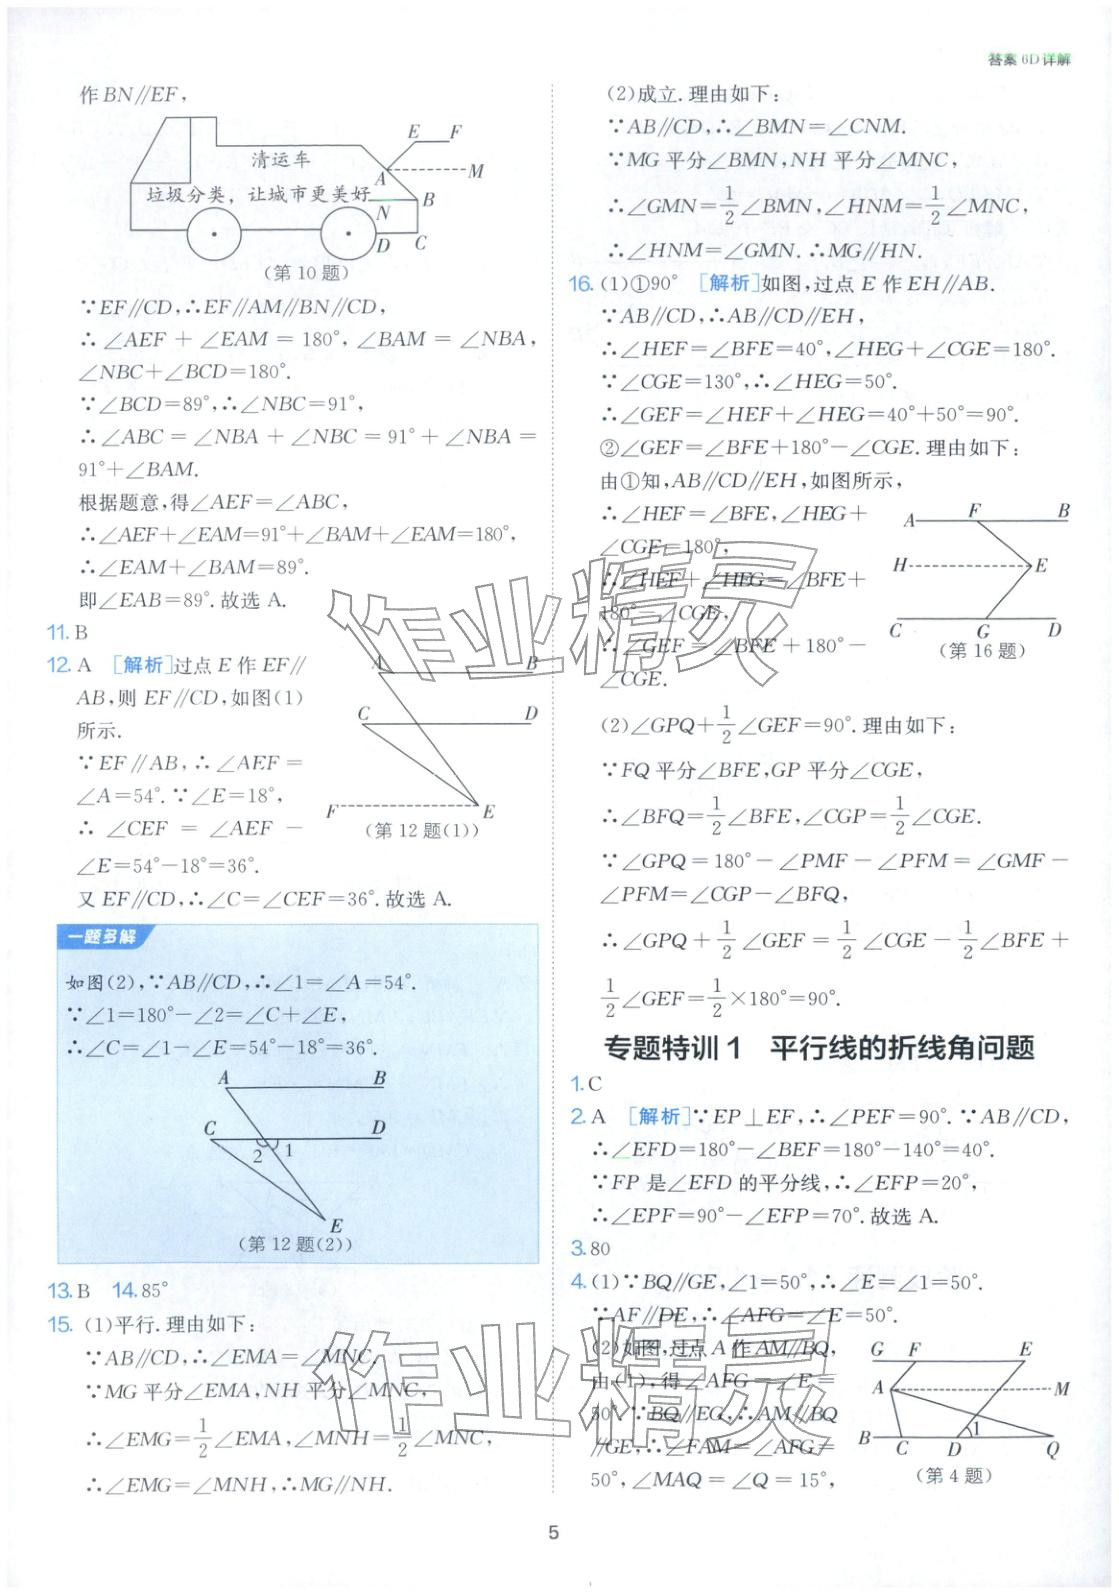 答案 6D 详解
作 BN∥EF，
E F
清运车
A M
垃圾分类，让城市更美好
N B
D C
(第 10 题)
∵EF∥CD,∴EF∥AM∥BN∥CD,
∴∠AEF+∠EAM=180°,∠BAM=∠NBA,
∠NBC+∠BCD=180°.
∵∠BCD=89°,∴∠NBC=91°,
∴∠ABC=∠NBA+∠NBC=91°+∠NBA=
91°+∠BAM.
根据题意,得∠AEF=∠ABC,
∴∠AEF+∠EAM=91°+∠BAM+∠EAM=180°,
∴∠EAM+∠BAM=89°.
即∠EAB=89°.故选 A.
11. B
12. A [解析]过点 E 作 EF∥
AB,则 EF∥CD,如图(1)
所示.
∵EF∥AB,∴∠AEF=
∠A=54°.∵∠E=18°,
∴∠CEF=∠AEF-
∠E=54°-18°=36°.
A B
C D
F E
(第 12 题(1))
又 EF∥CD,∴∠C=∠CEF=36°.故选 A.
一题多解
如图(2),∵AB∥CD,∴∠1=∠A=54°.
∵∠1=180°-∠2=∠C+∠E,
∴∠C=∠1-∠E=54°-18°=36°.
A B
C D
2 1
E
(第 12 题(2))
13. B 14. 85°
15. (1)平行.理由如下:
∵AB∥CD,∴∠EMA=∠MNC.
∵MG 平分∠EMA,NH 平分∠MNC,
∴∠EMG=1/2∠EMA,∠MNH=1/2∠MNC,
∴∠EMG=∠MNH,∴MG∥NH.
(2)成立.理由如下:
∵AB∥CD,∴∠BMN=∠CNM.
∵MG 平分∠BMN,NH 平分∠MNC,
∴∠GMN=1/2∠BMN,∠HNM=1/2∠MNC,
∴∠HNM=∠GMN.∴MG∥HN.
16. (1)①90° [解析]如图,过点 E 作 EH∥AB.
∵AB∥CD,∴AB∥CD∥EH,
∴∠HEF=∠BFE=40°,∠HEG+∠CGE=180°.
∵∠CGE=130°,∴∠HEG=50°.
∴∠GEF=∠HEF+∠HEG=40°+50°=90°.
②∠GEF=∠BFE+180°-∠CGE.理由如下:
由①知,AB∥CD∥EH,如图所示,
∴∠HEF=∠BFE,∠HEG+
∠CGE=180°,
∴∠HEF+∠HEG=∠BFE+
180°-∠CGE,
∴∠GEF=∠BFE+180°-
∠CGE.
A F B
H E
C G D
(第 16 题)
(2)∠GPQ+1/2∠GEF=90°.理由如下:
∵FQ 平分∠BFE,GP 平分∠CGE,
∴∠BFQ=1/2∠BFE,∠CGP=1/2∠CGE.
∵∠GPQ=180°-∠PMF-∠PFM=∠GMF-
∠PFM=∠CGP-∠BFQ,
∴∠GPQ+1/2∠GEF=1/2∠CGE-1/2∠BFE+
1/2∠GEF=1/2×180°=90°.
专题特训 1 平行线的折线角问题
1. C
2. A [解析]∵EP⊥EF,∴∠PEF=90°.∵AB∥CD,
∴∠EFD=180°-∠BEF=180°-140°=40°.
∵FP 是∠EFD 的平分线,∴∠EFP=20°,
∴∠EPF=90°-∠EFP=70°.故选 A.
3. 80
4. (1)∵BQ∥GE,∠1=50°,∴∠E=∠1=50°.
∵AF∥DE,∴∠AFG=∠E=50°.
(2)如图,过点 A 作 AM∥BQ,
由(1),得∠AFG=∠E=
50°.∵BQ∥EG,∴AM∥BQ
∥GE,∴∠FAM=∠AFG=
50°,∠MAQ=∠Q=15°,
G F E
A M
B C D 1 Q
(第 4 题)
作业精灵
作业精灵
5